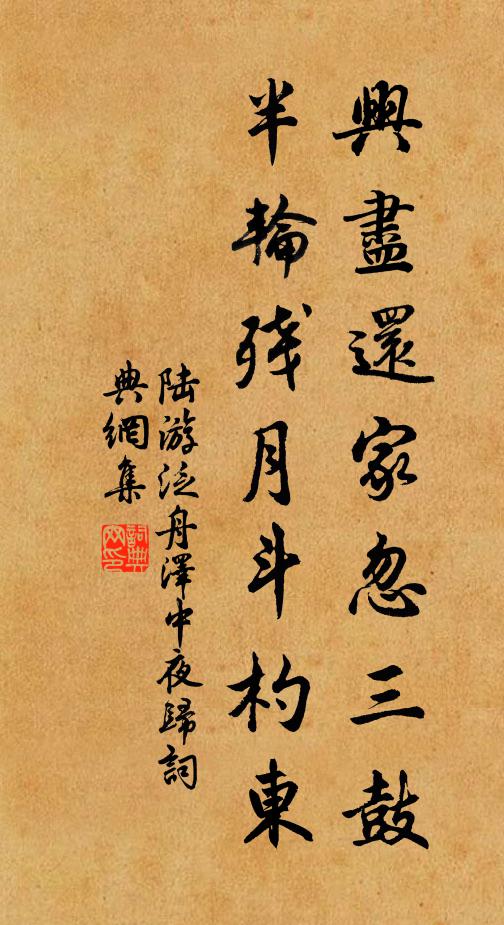 興盡還家忽三鼓
半輪残月斗杓東
陆游泛舟澤中夜歸詞
典網集
詞典網印